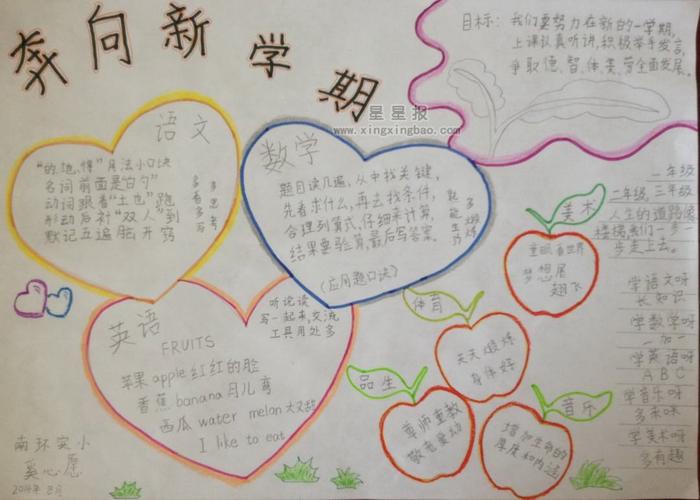 奔向新学期
目标：我们要努力在新的一学期，
上课认真听讲，积极举手发言，
争取德、智、体、美、劳全面发展。
星星报
www.xingxingbao.com
语文
"的、地、得"用法小口诀
名词前面是白勺"
动词跟着"土也"跑
形动后补"双人"到
默记五遍脑开窍
多看多写
多思考
数学
题目读几遍，从中找关键，
先看求什么，再去找条件，
合理列算式，仔细来计算，
结果要验算，最后写答案。
（应用题口诀）
多锻炼
就能生巧
英语
FRUITS
苹果apple红红的脸
香蕉banana月儿弯
西瓜water melon大又甜
I like to eat
听说读
写一起来，交流
工具用处多
美术
重眼看世界
梦想展
翅飞
体育
天天锻炼
身体好
品生
尊师重教
敬老爱幼
音乐
增加生命的
厚度和内涵
一年级
二年级，三年级
人生的道路像
楼梯，我们一步
步走上去。
学语文呀
长知识
学数学呀
一加一
学英语呀
ABC
学音乐呀
多来咪
学美术呀
多有趣
南环实小
奚心愿